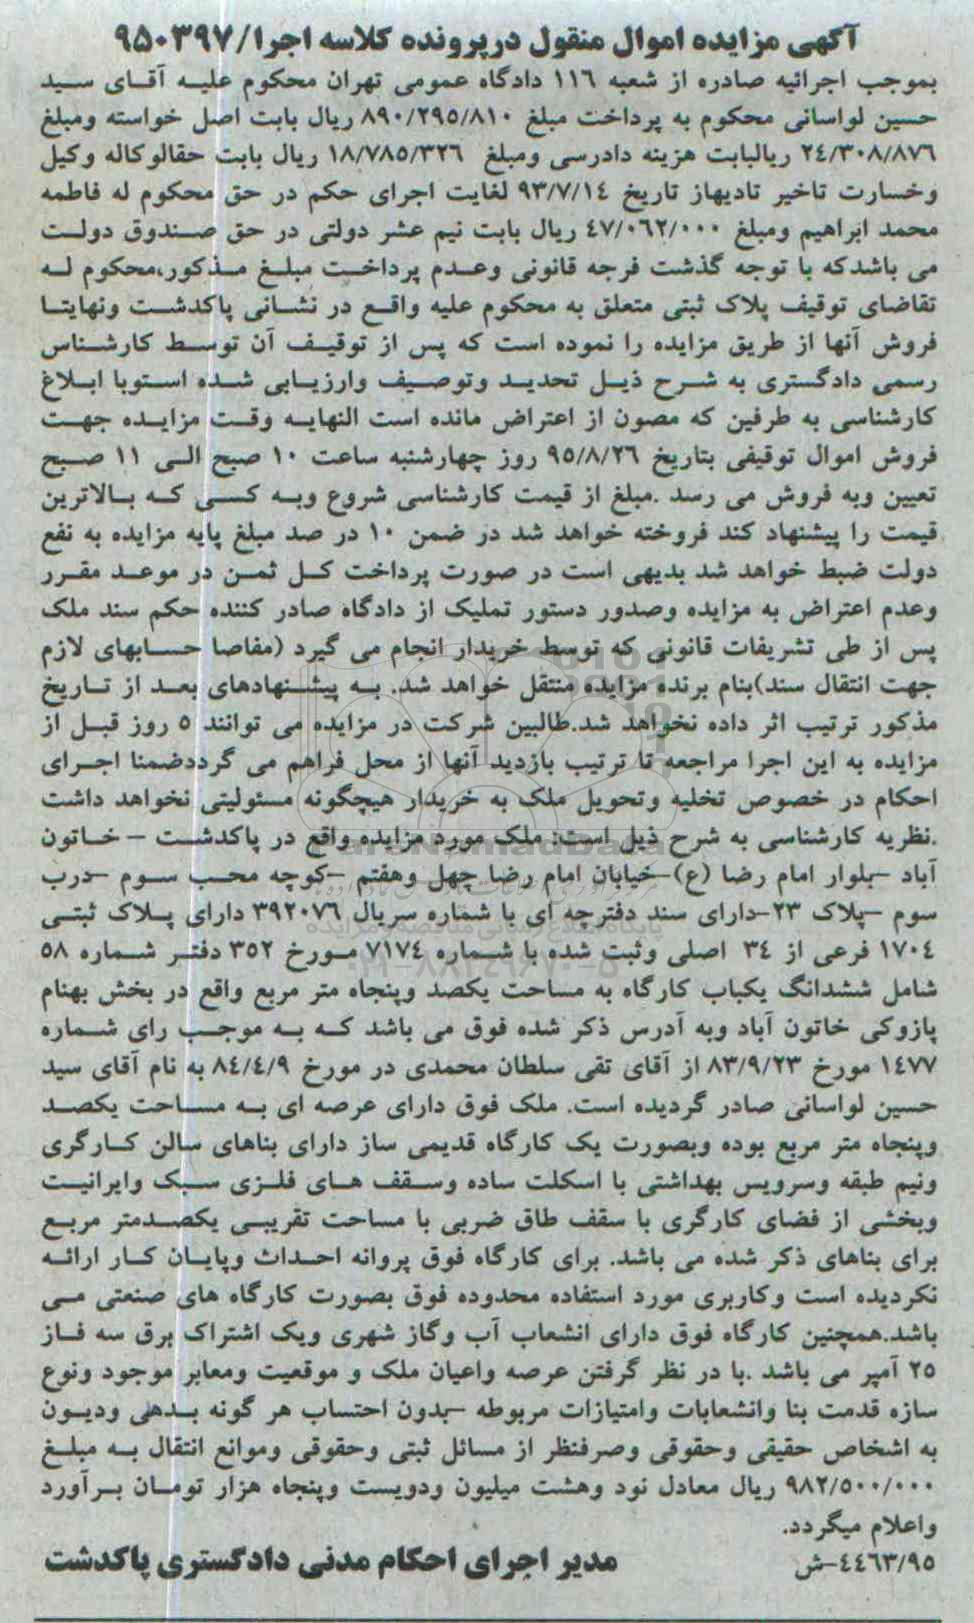 آگهی مزایده اموال منقول درپرونده کلاسه اجرا/۹۵۰۳۹۷
بموجب اجرائیه صادره از شعبه ۱۱۶ دادگاه عمومی تهران محکوم علیه آقای سید
حسین لواسانی محکوم به پرداخت مبلغ ۸۹۰/۲۹۵/۸۱۰ ریال بابت اصل خواسته ومبلغ
۲۴/۳۰۸/۸۷۶ ریالبابت هزینه دادرسی ومبلغ ۱۸/۷۸۵/۳۲۶ ریال بابت حقالوکاله وکیل
وخسارت تاخیر تادیهاز تاریخ ۹۳/۷/۱۴ لغایت اجرای حکم در حق محکوم له فاطمه
محمد ابراهیم ومبلغ ۴۷/۰۶۲/۰۰۰ ریال بابت نیم عشر دولتی در حق صندوق دولت
می باشدکه با توجه گذشت فرجه قانونی وعدم پرداخت مبلغ مذکور،محکوم له
تقاضای توقیف پلاک ثبتی متعلق به محکوم علیه واقع در نشانی پاکدشت ونهایتا
فروش آنها از طریق مزایده را نموده است که پس از توقیف آن توسط کارشناس
رسمی دادگستری به شرح ذیل تحدید وتوصیف وارزیابی شده استوبا ابلاغ
کارشناسی به طرفین که مصون از اعتراض مانده است النهایه وقت مزایده جهت
فروش اموال توقیفی بتاریخ ۹۵/۸/۲۶ روز چهارشنبه ساعت ۱۰ صبح الی ۱۱ صبح
تعیین وبه فروش می رسد .مبلغ از قیمت کارشناسی شروع وبه کسی که بالاترین
قیمت را پیشنهاد کند فروخته خواهد شد در ضمن ۱۰ در صد مبلغ پایه مزایده به نفع
دولت ضبط خواهد شد بدیهی است در صورت پرداخت کل ثمن در موعد مقرر
وعدم اعتراض به مزایده وصدور دستور تملیک از دادگاه صادر کننده حکم سند ملک
پس از طی تشریفات قانونی که توسط خریدار انجام می گیرد (مفاصا حسابهای لازم
جهت انتقال سند)بنام برنده مزایده منتقل خواهد شد. به پیشنهادهای بعد از تاریخ
مذکور ترتیب اثر داده نخواهد شد.طالبین شرکت در مزایده می توانند ۵ روز قبل از
مزایده به این اجرا مراجعه تا ترتیب بازدید آنها از محل فراهم می گرددضمنا اجرای
احکام در خصوص تخلیه وتحویل ملک به خریدار هیچگونه مسئولیتی نخواهد داشت
.نظریه کارشناسی به شرح ذیل است: ملک مورد مزایده واقع در پاکدشت – خاتون
آباد –بلوار امام رضا (ع)–خیابان امام رضا چهل وهفتم –کوچه محب سوم –درب
سوم –پلاک ۲۳–دارای سند دفترچه ای با شماره سریال ۳۹۲۰۷۶ دارای پلاک ثبتی
۱۷۰۴ فرعی از ۳۴ اصلی وثبت شده با شماره ۷۱۷۴ مورخ ۳۵۲ دفتر شماره ۵۸
شامل ششدانگ یکباب کارگاه به مساحت یکصد وپنجاه متر مربع واقع در بخش بهنام
پازوکی خاتون آباد وبه آدرس ذکر شده فوق می باشد که به موجب رای شماره
۱۴۷۷ مورخ ۸۳/۹/۲۳ از آقای تقی سلطان محمدی در مورخ ۸۴/۴/۹ به نام آقای سید
حسین لواسانی صادر گردیده است. ملک فوق دارای عرصه ای به مساحت یکصد
وپنجاه متر مربع بوده وبصورت یک کارگاه قدیمی ساز دارای بناهای سالن کارگری
ونیم طبقه وسرویس بهداشتی با اسکلت ساده وسقف های فلزی سبک وایرانیت
وبخشی از فضای کارگری با سقف طاق ضربی با مساحت تقریبی یکصدمتر مربع
برای بناهای ذکر شده می باشد. برای کارگاه فوق پروانه احداث وپایان کار ارائه
نکردیده است وکاربری مورد استفاده محدوده فوق بصورت کارگاه های صنعتی می
باشد.همچنین کارگاه فوق دارای انشعاب آب وگاز شهری ویک اشتراک برق سه فاز
۲۵ آمپر می باشد .با در نظر گرفتن عرصه واعیان ملک و موقعیت ومعابر موجود ونوع
سازه قدمت بنا وانشعابات وامتیازات مربوطه –بدون احتساب هر گونه بدهی ودیون
به اشخاص حقیقی وحقوقی وصرفنظر از مسائل ثبتی وحقوقی وموانع انتقال به مبلغ
۹۸۲/۵۰۰/۰۰۰ ریال معادل نود وهشت میلیون ودویست وپنجاه هزار تومان برآورد
واعلام میگردد.
۴۴۶۳/۹۵–ش
مدیر اجرای احکام مدنی دادگستری پاکدشت